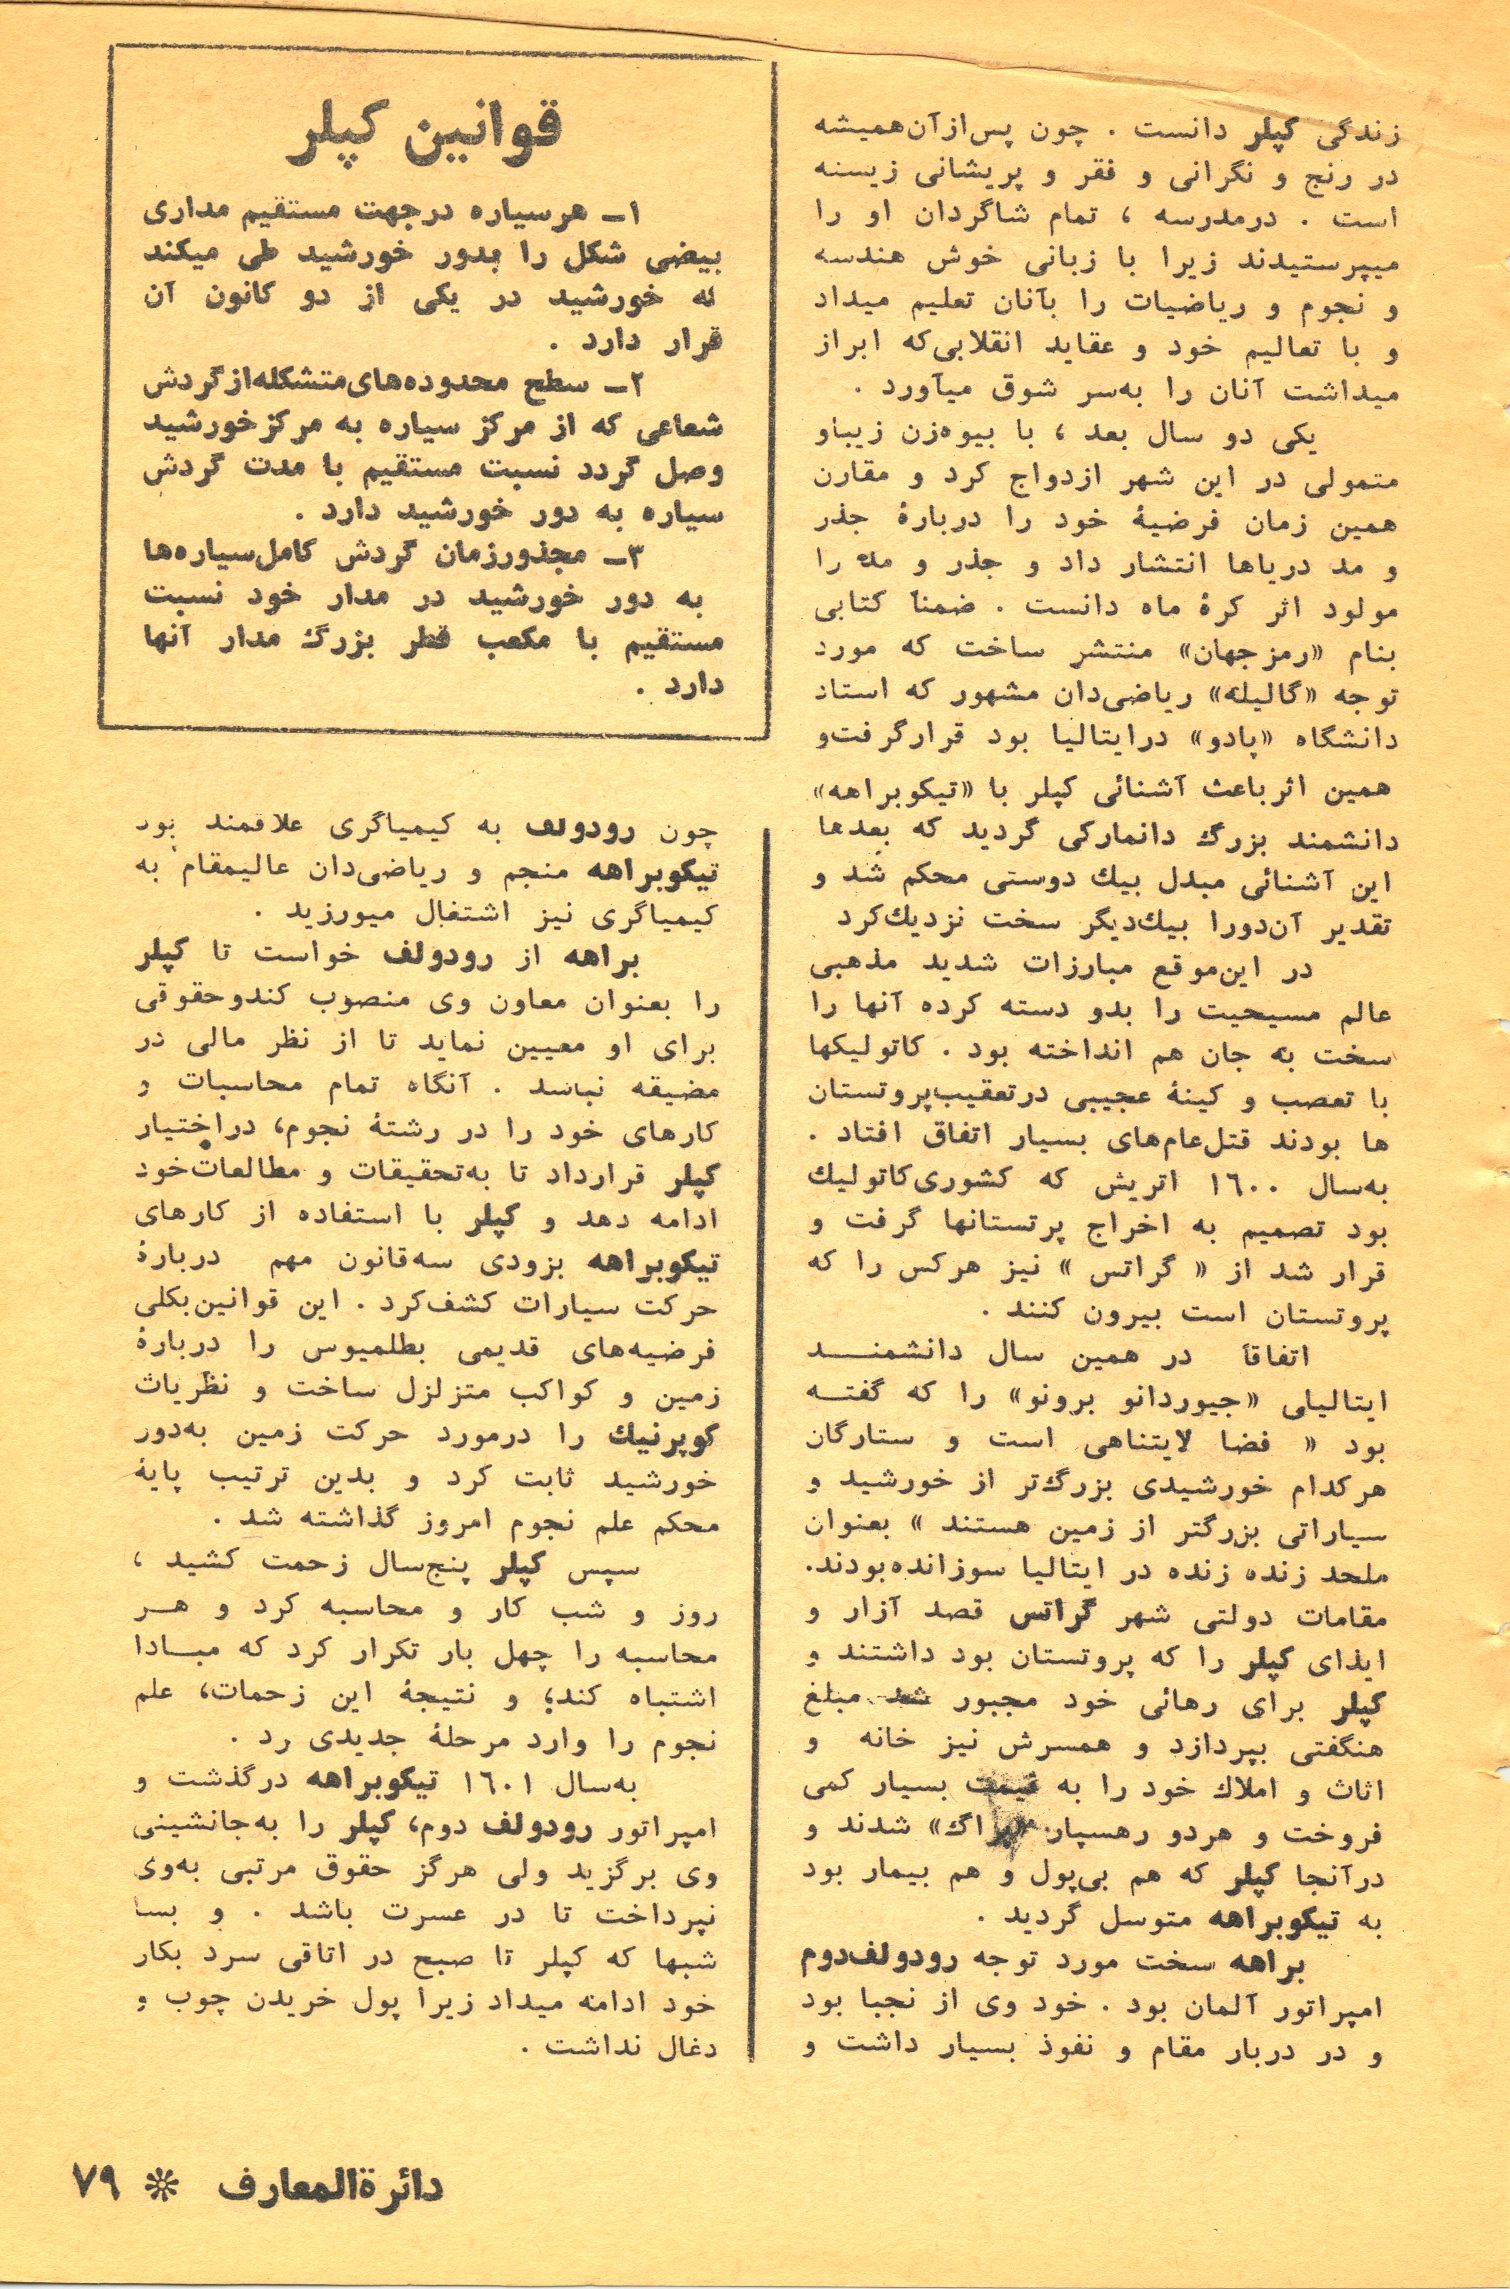 زندگی کپلر دانست . چون پس‌از‌آن‌همیشه
در رنج و نگرانی و فقر و پریشانی زیسته
است . درمدرسه ، تمام شاگردان او را
میپرستیدند زیرا با زبانی خوش هندسه
و نجوم و ریاضیات را بآنان تعلیم میداد
و با تعالیم خود و عقاید انقلابی‌که ابراز
میداشت آنان را به‌سر شوق میآورد .
یکی دو سال بعد ، با بیوه‌زن زیباو
متمولی در این شهر ازدواج کرد و مقارن
همین زمان فرضیهٔ خود را دربارهٔ جذر
و مد دریاها انتشار داد و جذر و مد را
مولود اثر کرهٔ ماه دانست . ضمناً کتابی
بنام «رمزجهان» منتشر ساخت که مورد
توجه «گالیله» ریاضی‌دان مشهور که استاد
دانشگاه «پادو» درایتالیا بود قرارگرفت‌و
همین اثرباعث آشنائی کپلر با «تیکوبراهه»
دانشمند بزرگ دانمارکی گردید که بعدها
این آشنائی مبدل بیك دوستی محکم شد و
تقدیر آن‌دورا بیك‌دیگر سخت نزدیك‌کرد
در این‌موقع مبارزات شدید مذهبی
عالم مسیحیت را بدو دسته کرده آنها را
سخت به جان هم انداخته بود . کاتولیکها
با تعصب و کینهٔ عجیبی درتعقیب‌پروتستان
ها بودند قتل‌عام‌های بسیار اتفاق افتاد .
به‌سال ١٦٠٠ اتریش که کشوری‌کاتولیك
بود تصمیم به اخراج پرتستانها گرفت و
قرار شد از « گراتس » نیز هرکس را که
پروتستان است بیرون کنند .
اتفاقاً در همین سال دانشمنــد
ایتالیلی «جیوردانو برونو» را که گفتــه
بود « فضا لایتناهی است و ستارگان
هرکدام خورشیدی بزرگ‌تر از خورشید و
سیاراتی بزرگتر از زمین هستند » بعنوان
ملحد زنده زنده در ایتالیا سوزانده‌بودند.
مقامات دولتی شهر گراتس قصد آزار و
ایذای کپلر را که پروتستان بود داشتند و
کپلر برای رهائی خود مجبور شد مبلغ
هنگفتی بپردازد و همسرش نیز خانه و
اثاث و املاك خود را به قیمت بسیار کمی
فروخت و هردو رهسپار «پراگ» شدند و
درآنجا کپلر که هم بی‌پول و هم بیمار بود
به تیکوبراهه متوسل گردید .
براهه سخت مورد توجه رودولف‌دوم
امپراتور آلمان بود . خود وی از نجبا بود
و در دربار مقام و نفوذ بسیار داشت و
قوانین کپلر
١ــ هرسیاره درجهت مستقیم مداری
بیضی شکل را بدور خورشید طی میکند
که خورشید در یکی از دو کانون آن
قرار دارد .
٢ــ سطح محدوده‌های‌متشکله‌ازگردش
شعاعی که از مرکز سیاره به مرکزخورشید
وصل گردد نسبت مستقیم با مدت گردش
سیاره به دور خورشید دارد .
٣ــ مجذورزمان گردش کامل‌سیاره‌ها
به دور خورشید در مدار خود نسبت
مستقیم با مکعب قطر بزرگ مدار آنها
دارد .
چون رودولف به کیمیاگری علاقمند بود
تیکوبراهه منجم و ریاضی‌دان عالیمقام به
کیمیاگری نیز اشتغال میورزید .
براهه از رودولف خواست تا کپلر
را بعنوان معاون وی منصوب کندوحقوقی
برای او معیین نماید تا از نظر مالی در
مضیقه نباشد . آنگاه تمام محاسبات و
کارهای خود را در رشتهٔ نجوم، دراختیار
کپلر قرارداد تا به‌تحقیقات و مطالعات‌خود
ادامه دهد و کپلر با استفاده از کارهای
تیکوبراهه بزودی سه‌قانون مهم دربارهٔ
حرکت سیارات کشف‌کرد . این قوانین‌بکلی
فرضیه‌های قدیمی بطلمیوس را دربارهٔ
زمین و کواکب متزلزل ساخت و نظریات
کوپرنیك را درمورد حرکت زمین به‌دور
خورشید ثابت کرد و بدین ترتیب پایهٔ
محکم علم نجوم امروز گذاشته شد .
سپس کپلر پنج‌سال زحمت کشید ،
روز و شب کار و محاسبه کرد و هــر
محاسبه را چهل بار تکرار کرد که مبــادا
اشتباه کند؛ و نتیجهٔ این زحمات، علم
نجوم را وارد مرحلهٔ جدیدی رد .
به‌سال ١٦٠١ تیکوبراهه درگذشت و
امپراتور رودولف دوم، کپلر را به‌جانشینی
وی برگزید ولی هرگز حقوق مرتبی به‌وی
نپرداخت تا در عسرت باشد . و بسا
شبها که کپلر تا صبح در اتاقی سرد بکار
خود ادامه میداد زیرا پول خریدن چوب و
دغال نداشت .
دائرةالمعارف ❊ ٧٩